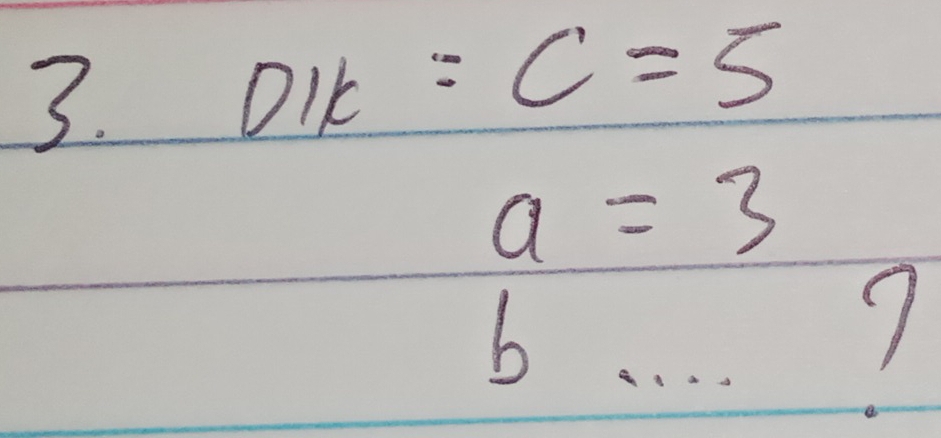 3. Dik : C = 5
a = 3
b .... ?